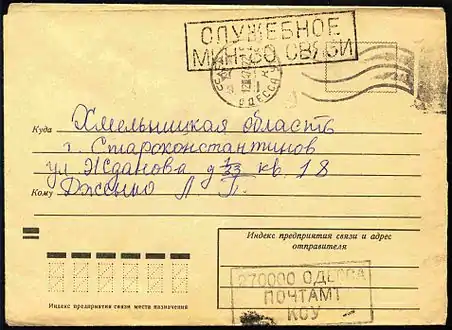 СЛУЖЕБНОЕ
МИН-ВО СВЯЗИ
ОДЕССА
Куда Хмельницкая область
г. Староконстантинов
ул. Жданова д 1/33 кв. 18
Кому Дженко Л. П.
Индекс предприятия связи и адрес
отправителя
270000 ОДЕССА
ПОЧТАМТ
КОУ
Индекс предприятия связи места назначения